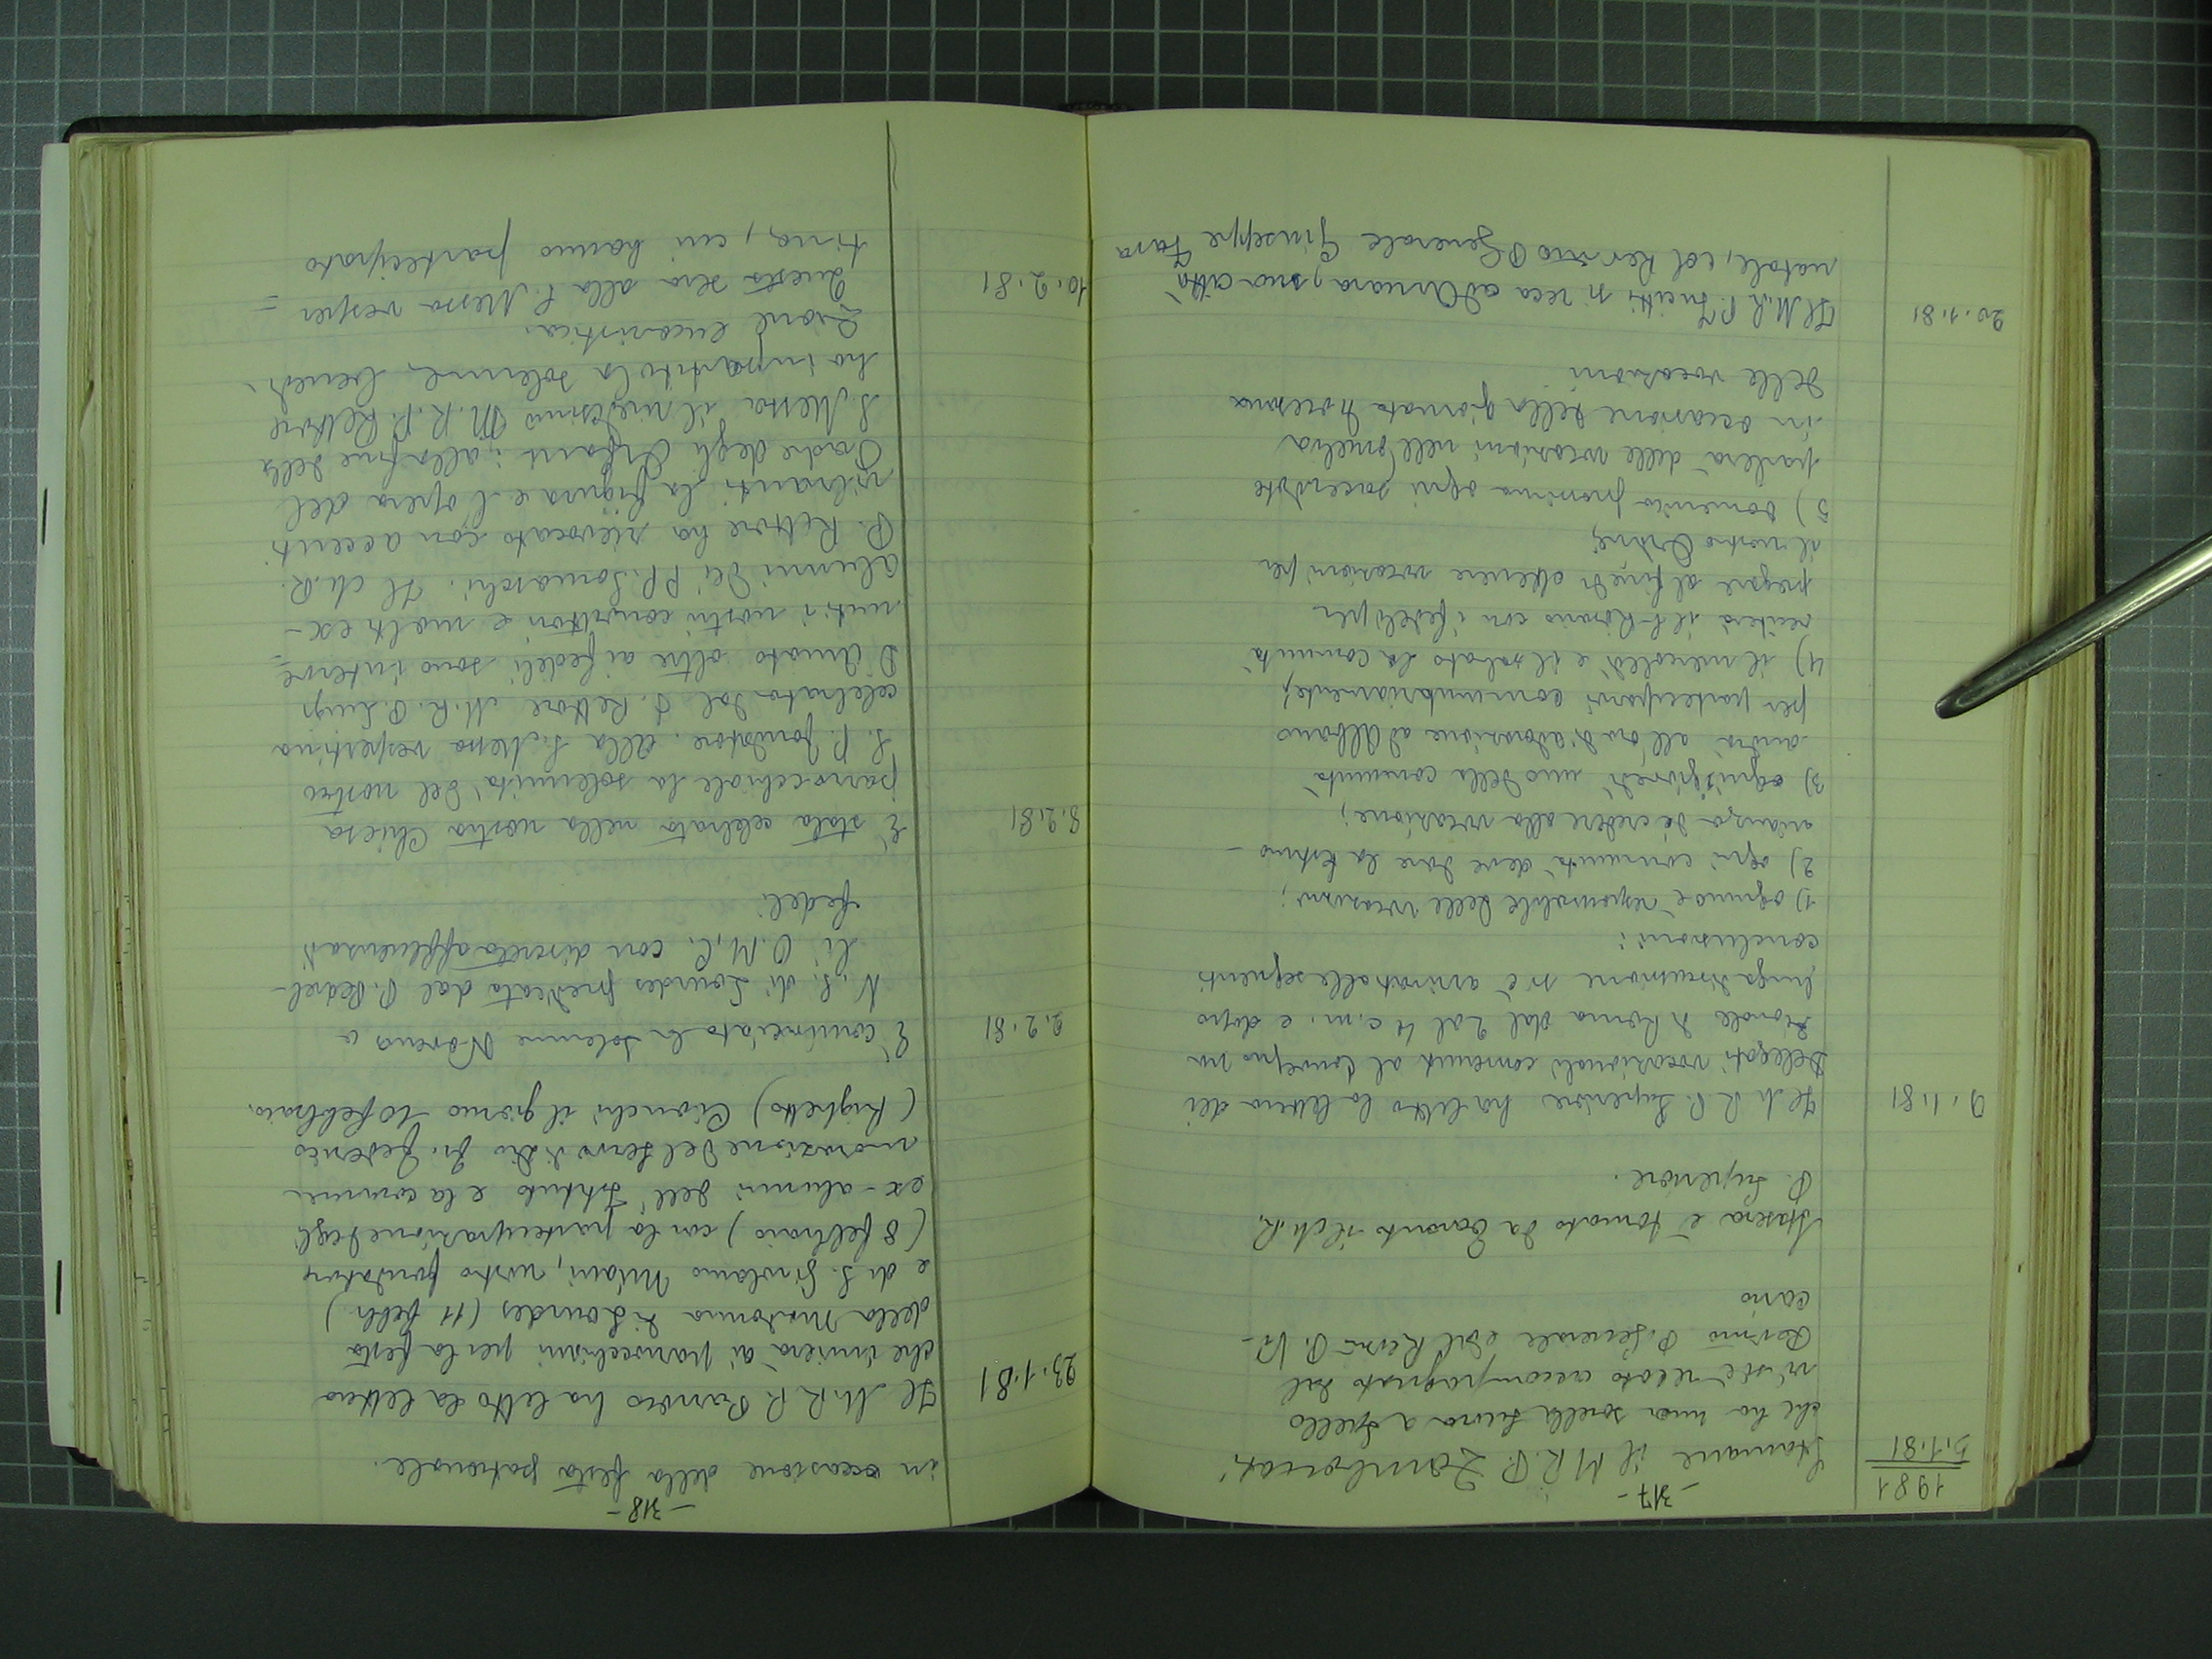 -317-
1981
5.1.81 Stamane il M.R.P. Zambonati,
che ha una sorella suora a Spello
vi si è recato accompagnato dal
Rev.mo P. Generale e dal Rev.mo P. Vi-
cario
Stasera è tornato da Taranto il M.R.
P. Superiore.
9.1.81 Il M.R.P. Superiore ha letto la lettera dei
Delegati vocazionali convenuti al Convegno na
zionale di Roma dal 2 al 4 c.m. e dopo
lunga discussione si è arrivati alle seguenti
conclusioni:
1) ognuno è responsabile delle vocazioni;
2) ogni comunità deve dare la testimo-
nianza di credere alla vocazione;
3) ogni giovedì uno della comunità
andrà all'ora d'adorazione ad Albano
per parteciparvi comunitariamente;
4) il mercoledì e il sabato la comunità
reciterà il S. Rosario con i fedeli per
pregare al fine di ottenere vocazioni per
il nostro Ordine;
5) Domenica prossima ogni sacerdote
parlerà delle vocazioni nell'omelia
in occasione della giornata diocesana
delle vocazioni.
20.1.81 Il M.R.P. si reca ad sua città
natale, col Rev.mo P. Generale Giuseppe Fava
-318-
in occasione della festa patronale.
23.1.81 Il M.R.P. Parroco ha letto la lettera
che invierà ai parrocchiani per la festa
della Madonna di Lourdes (11 febb.)
e di S. Girolamo Miani, nostro fondatore
(8 febbraio) con la partecipazione degli
ex-alunni dell'Istituto e la comme
morazione del Servo di Dio Fr. Federico
(Righetto) Cionchi il giorno 10 febbraio.
2.2.81 È cominciata la solenne Novena a
N.S. di Lourdes predicata dal P. Pedrel-
li O.M.C. con discreta affluenza di
fedeli.
8.2.81 È stata celebrata nella nostra Chiesa
parrocchiale la solennità del nostro
S.P. fondatore. Alla S. Messa vespertina
celebrata dal P. Rettore M.R.P. Luigi
D'Amato oltre ai fedeli sono interve=
nuti i nostri convittori e molti ex-
alunni dei PP. Somaschi. Il M.R.
P. Rettore ha rievocato con accenti
vibranti la figura e l'opera del
Padre degli Orfani; alla fine della
S. Messa il medesimo M.R.P. Rettore
ha impartito la solenne benedi-
zione eucaristica.
10.2.81 Questa sera alla S. Messa vesper=
tina, cui hanno partecipato